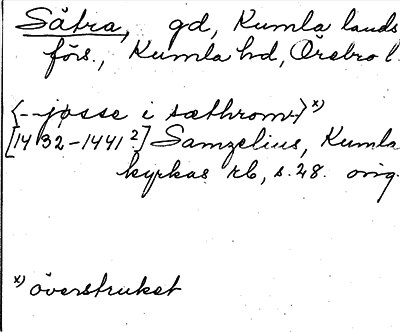 Sätra, gd, Kumla lands
förs., Kumla hd, Örebro l.
⟨--jösse i sæthrom⟩ x)
[1432-1441?] Samzelius, Kumla
kyrkas rb, s.28. orig.
x) överstruket